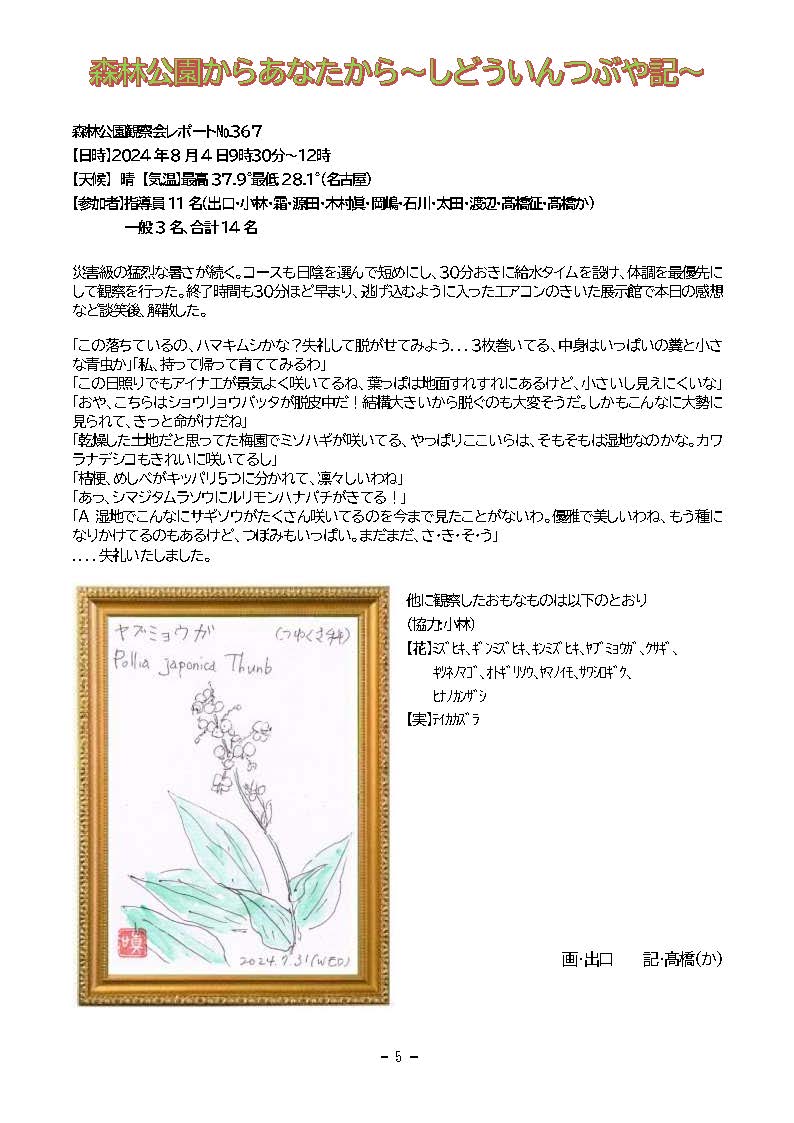 森林公園からあなたから～しどういんつぶや記～
森林公園観察会レポート№367
【日時】2024年8月4日9時30分～12時
【天候】 晴 【気温】最高37.9°最低28.1°(名古屋)
【参加者】指導員11名(出口・小林・霜・源田・木村眞・岡嶋・石川・太田・渡辺・高橋征・高橋か)
一般3名、合計14名
災害級の猛烈な暑さが続く。コースも日陰を選んで短めにし、30分おきに給水タイムを設け、体調を最優先に
して観察を行った。終了時間も30分ほど早まり、逃げ込むように入ったエアコンのきいた展示館で本日の感想
など談笑後、解散した。
「この落ちているの、ハマキムシかな？失礼して脱がせてみよう...3枚巻いてる、中身はいっぱいの糞と小さ
な青虫か」「私、持って帰って育ててみるわ」
「この日照りでもアイナエが景気よく咲いてるね、葉っぱは地面すれすれにあるけど、小さいし見えにくいな」
「おや、こちらはショウリョウバッタが脱皮中だ！結構大きいから脱ぐのも大変そうだ。しかもこんなに大勢に
見られて、きっと命がけだね」
「乾燥した土地だと思ってた梅園でミソハギが咲いてる、やっぱりここいらは、そもそもは湿地なのかな。カワ
ラナデシコもきれいに咲いてるし」
「桔梗、めしべがキッパリ5つに分かれて、凛々しいわね」
「あっ、シマジタムラソウにルリモンハナバチがきてる！」
「A 湿地でこんなにサギソウがたくさん咲いてるのを今まで見たことがないわ。優雅で美しいわね、もう種に
なりかけてるのもあるけど、つぼみもいっぱい。まだまだ、さ・き・そ・う」
....失礼いたしました。
ヤブミョウガ (つゆくさ科)
Pollia japonica Thunb
2024.7.31(WED)
他に観察したおもなものは以下のとおり
(協力:小林)
【花】ﾐｽﾞﾋｷ、ｷﾞﾝﾐｽﾞﾋｷ、ｷﾝﾐｽﾞﾋｷ、ﾔﾌﾞﾐｮｳｶﾞ、ｸｻｷﾞ、
ｷﾂﾈﾉﾏｺﾞ、ｵﾄｷﾞﾘｿｳ、ﾔﾏﾉｲﾓ、ｻﾜｼﾛｷﾞｸ、
ﾋﾅﾉｶﾝｻﾞｼ
【実】ﾃｲｶｶｽﾞﾗ
画・出口 記・高橋(か)
- 5 -